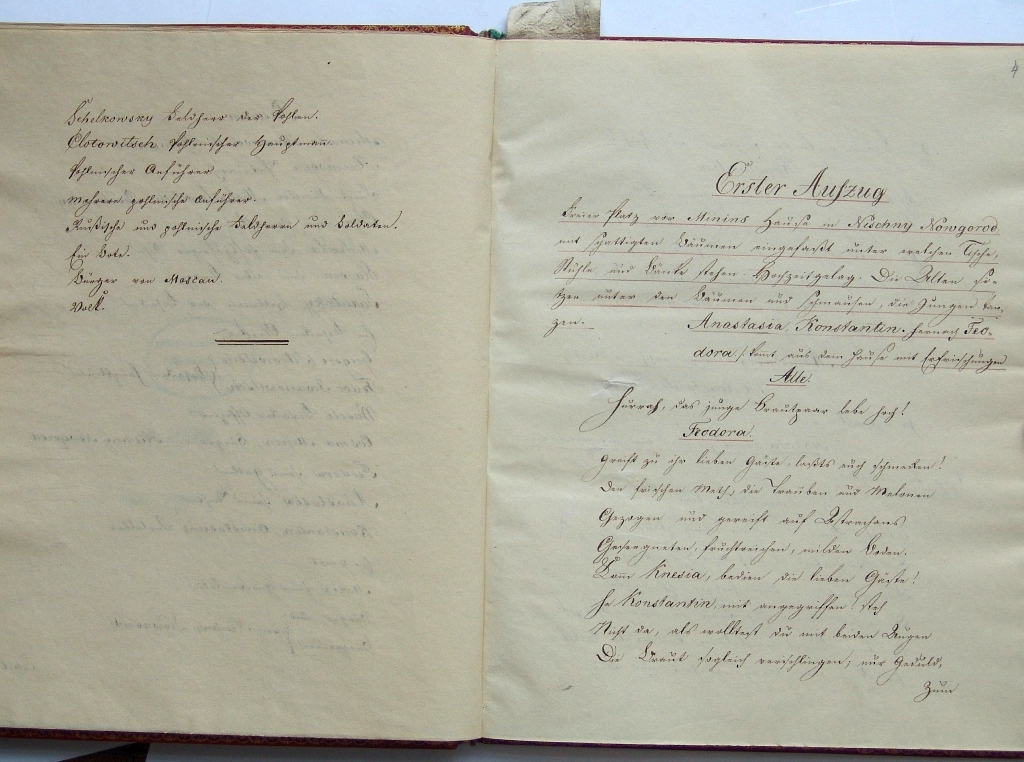 Schelkowsky Feldherr der Pohlen.
Clotowitsch Pohlnischer Hauptmann
Pohlnischer Anführer
Mehrere pohlnische Anführer.
Rußische und pohlnische Feldherrn und Soldaten.
Ein Bote.
Bürger von Moscau.
Volk.
4
Erster Aufzug
Freier Platz vor Minins Hause in Nischny Nowgorod
mit schattigten Bäumen eingefaßt unter welchen Tische,
Stühle und Bänke stehen. Hochzeitgelag. Die Alten si-
tzen unter den Bäumen und schmausen, die Jungen tan-
zen. Anastasia, Konstantin. hernach Feo-
dora / kömt aus dem Hause mit Erfrischungen
Alle.
Hurrah, das junge Brautpaar lebe hoch!
Feodora.
Greift zu ihr lieben Gäste, laßts euch schmecken!
Den frischen Meth, die Trauben und Melonen
Gezogen und gereift auf Astrachans
Gesegneten, fruchtreichen, milden Boden.
Komm Knesia, bedien die lieben Gäste!
He Konstantin, mit angegriffen! steh
Nicht da, als wolltest du mit beiden Augen
Die Braut sogleich verschlingen; nur Geduld,
Zum